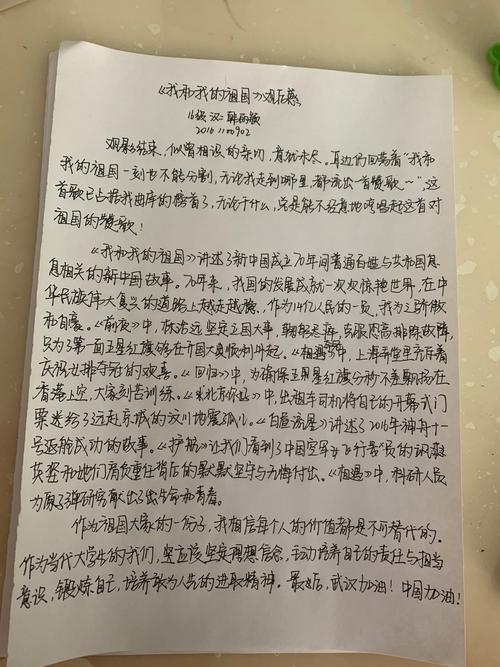 《我和我的祖国》观后感
16级 汉二 韩
2016110902
观影结束，似曾相识的亲切，意犹未尽。耳边仍回荡着“我和
我的祖国一刻也不能分割，无论我走到哪里，都流出一首赞歌～”。这
首歌已占据我曲库的榜首了，无论干什么，总是能不经意地哼唱起这首对
祖国的赞歌！
《我和我的祖国》讲述了新中国成立70年间普通百姓与共和国息
息相关的新中国故事。70年来，我国的发展成就一次次惊艳世界，在中
华民族伟大复兴的道路上越走越稳，作为14亿人民的一员，我为之骄傲
和自豪。《前夜》中，林治远坚定立国大事，克服恐高排除故障，
只为了第一面五星红旗能够在开国大典顺利升起。《相遇》中，上海弄堂里充斥着
庆祝女排夺冠的欢喜。《回归》中，为确保五星红旗分秒不差飘扬在
香港上空，大家刻苦训练。《北京你好》中，出租车司机将自己的开幕式门
票送给了远赴京城的汶川地震孤儿。《白昼流星》讲述了2016年神舟十一
号返航成功的故事。《护航》让我们看到了中国空军女飞行员的飒爽
英姿和她们肩负重任背后的默默坚守与无悔付出。《相遇》中，科研人员
为原子弹研究献出了生命和青春。
作为祖国大家的一份子，我相信每个人的价值都是不可替代的。
作为当代大学生的我们，更应该坚定理想信念，主动培养自己的责任与担当
意识，锻炼自己，培养敢为人先的进取精神。最后，武汉加油！中国加油！